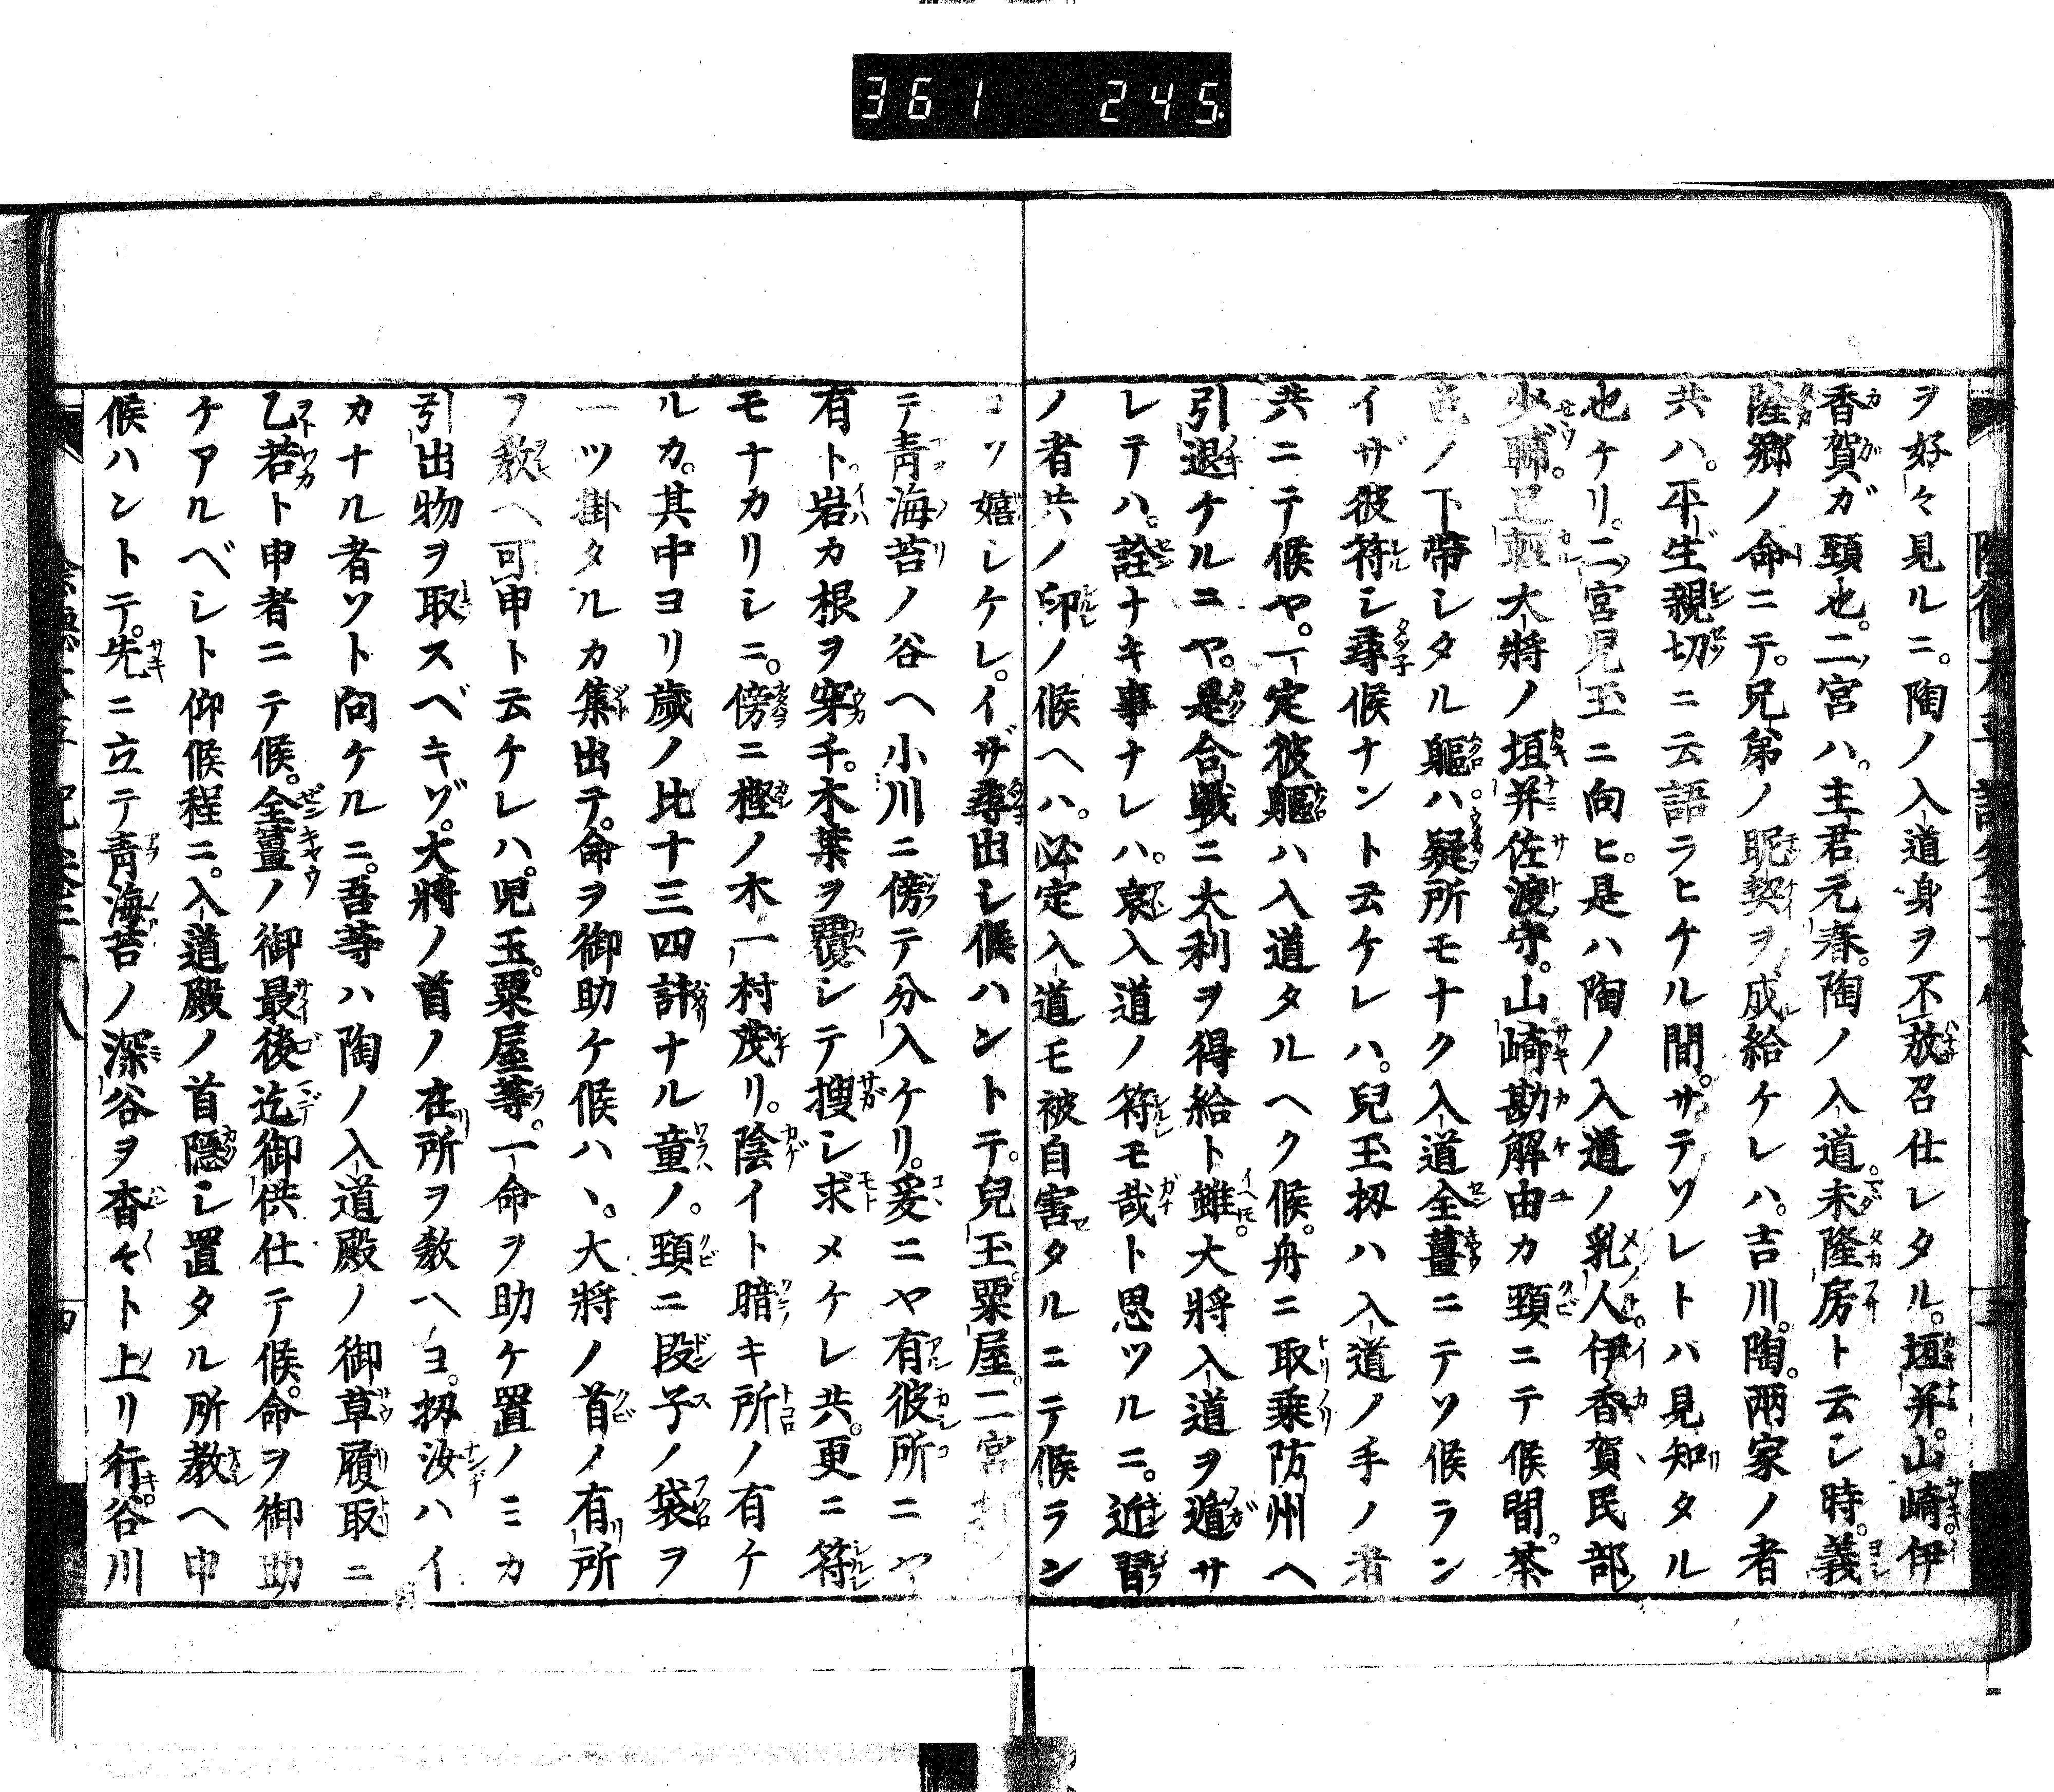 361 245
ヲ好々見ルニ。陶ノ入道身ヲ不放召仕レタル。垣并。山崎。伊
香賀ガ頸也。二宮ハ。主君元春。陶ノ入道。未隆房ト云シ時。義
隆郷ノ命ニテ。兄弟ノ昵契ヲ成給ケレハ。吉川。陶。兩家ノ者
共ハ。平生親切ニ云語ラヒケル間。サテソレトハ見知タル
也ケリ。二宮児玉ニ向ヒ。是ハ陶ノ入道ノ乳人。伊香賀民部
少輔。足軽大將ノ垣并佐渡守。山崎勘解由カ頸ニテ候間。茶
色ノ下帶シタル軀ハ。疑所モナク入道全薑ニテソ候ラン
イザ彼符シ尋候ナント云ケレハ。兒玉扨ハ入道ノ手ノ者
共ニテ候ヤ。一定彼軀ハ入道タルヘク候。舟ニ取乗防州ヘ
引退ケルニヤ。是合戰ニ大利ヲ得給ト雖。大將入道ヲ遁サ
レテハ。詮ナキ事ナレハ。哀入道ノ符モ哉ト思ツルニ。近習
ノ者共ノ印ノ候ヘハ。必定入道モ被自害タルニテ候ラン
コソ嬉シケレ。イザ尋出シ候ハントテ。兒玉。粟屋。二宮
テ青海苔ノ谷ヘ小川ニ傍テ分入ケリ。爰ニヤ有彼所ニヤ
有ト。岩カ根ヲ穿チ。木葉ヲ覆シテ搜シ求メケレ共。更ニ符
モナカリシニ。傍ニ樫ノ木一村茂リ。陰イト暗キ所ノ有ケ
ルカ。其中ヨリ歳ノ比十三四計ナル童ノ。頸ニ段子ノ袋ヲ
一ツ掛タルカ集出テ。命ヲ御助ケ候ハヽ。大將ノ首ノ有所
ヲ教ヘ可申ト云ケレハ。児玉。粟屋等。一命ヲ助ケ置ノミカ
引出物ヲ取スベキゾ。大將ノ首ノ在所ヲ教ヘヨ。扨汝ハイ
カナル者ソト向ケルニ。吾等ハ陶ノ入道殿ノ御草履取ニ
乙若ト申者ニテ候。全薑ノ御最後迄御供仕テ候。命ヲ御助
ケアルベシト仰候程ニ。入道殿ノ首隱シ置タル所教ヘ申
候ハントテ。先ニ立テ青海苔ノ深谷ヲ杳々ト上リ行。谷川